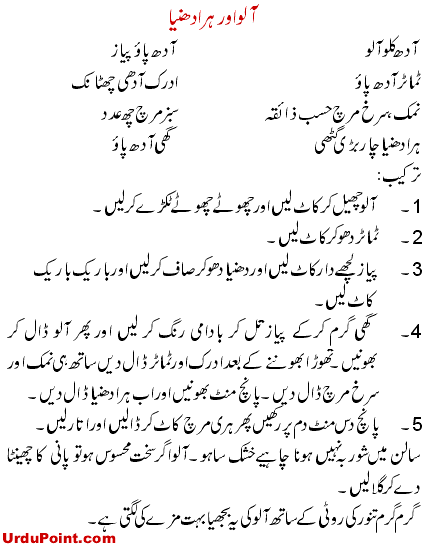 آلو اور ہرا دھنیا
آدھ کلو آلو آدھ پاؤ پیاز
ٹماٹر آدھ پاؤ ادرک آدھی چھٹانک
نمک، سرخ مرچ حسب ذائقہ سبز مرچ چھ عدد
ہرا دھنیا چار بڑی گٹھی گھی آدھ پاؤ
ترکیب:
1۔ آلو چھیل کر کاٹ لیں اور چھوٹے چھوٹے ٹکڑے کر لیں۔
2۔ ٹماٹر دھو کر کاٹ لیں۔
3۔ پیاز لچھے دار کاٹ لیں اور دھنیا دھو کر صاف کر لیں اور باریک باریک
کاٹ لیں۔
4۔ گھی گرم کر کے پیاز تل کر بادامی رنگ کر لیں اور پھر آلو ڈال کر
بھونیں۔ تھوڑا بھوننے کے بعد ادرک اور ٹماٹر ڈال دیں ساتھ ہی نمک اور
سرخ مرچ ڈال دیں۔ پانچ منٹ بھونیں اور اب ہرا دھنیا ڈال دیں۔
5۔ پانچ دس منٹ دم پر رکھیں پھر ہری مرچ کاٹ کر ڈالیں اور اتار لیں۔
سالن میں شوربہ نہیں ہونا چاہیے خشک سا ہو۔ آلو اگر سخت محسوس ہو تو پانی کا چھینٹا
دے کر گلا لیں۔
گرم گرم تنور کی روٹی کے ساتھ آلو کی یہ بجھیا بہت مزے کی لگتی ہے۔
UrduPoint.com